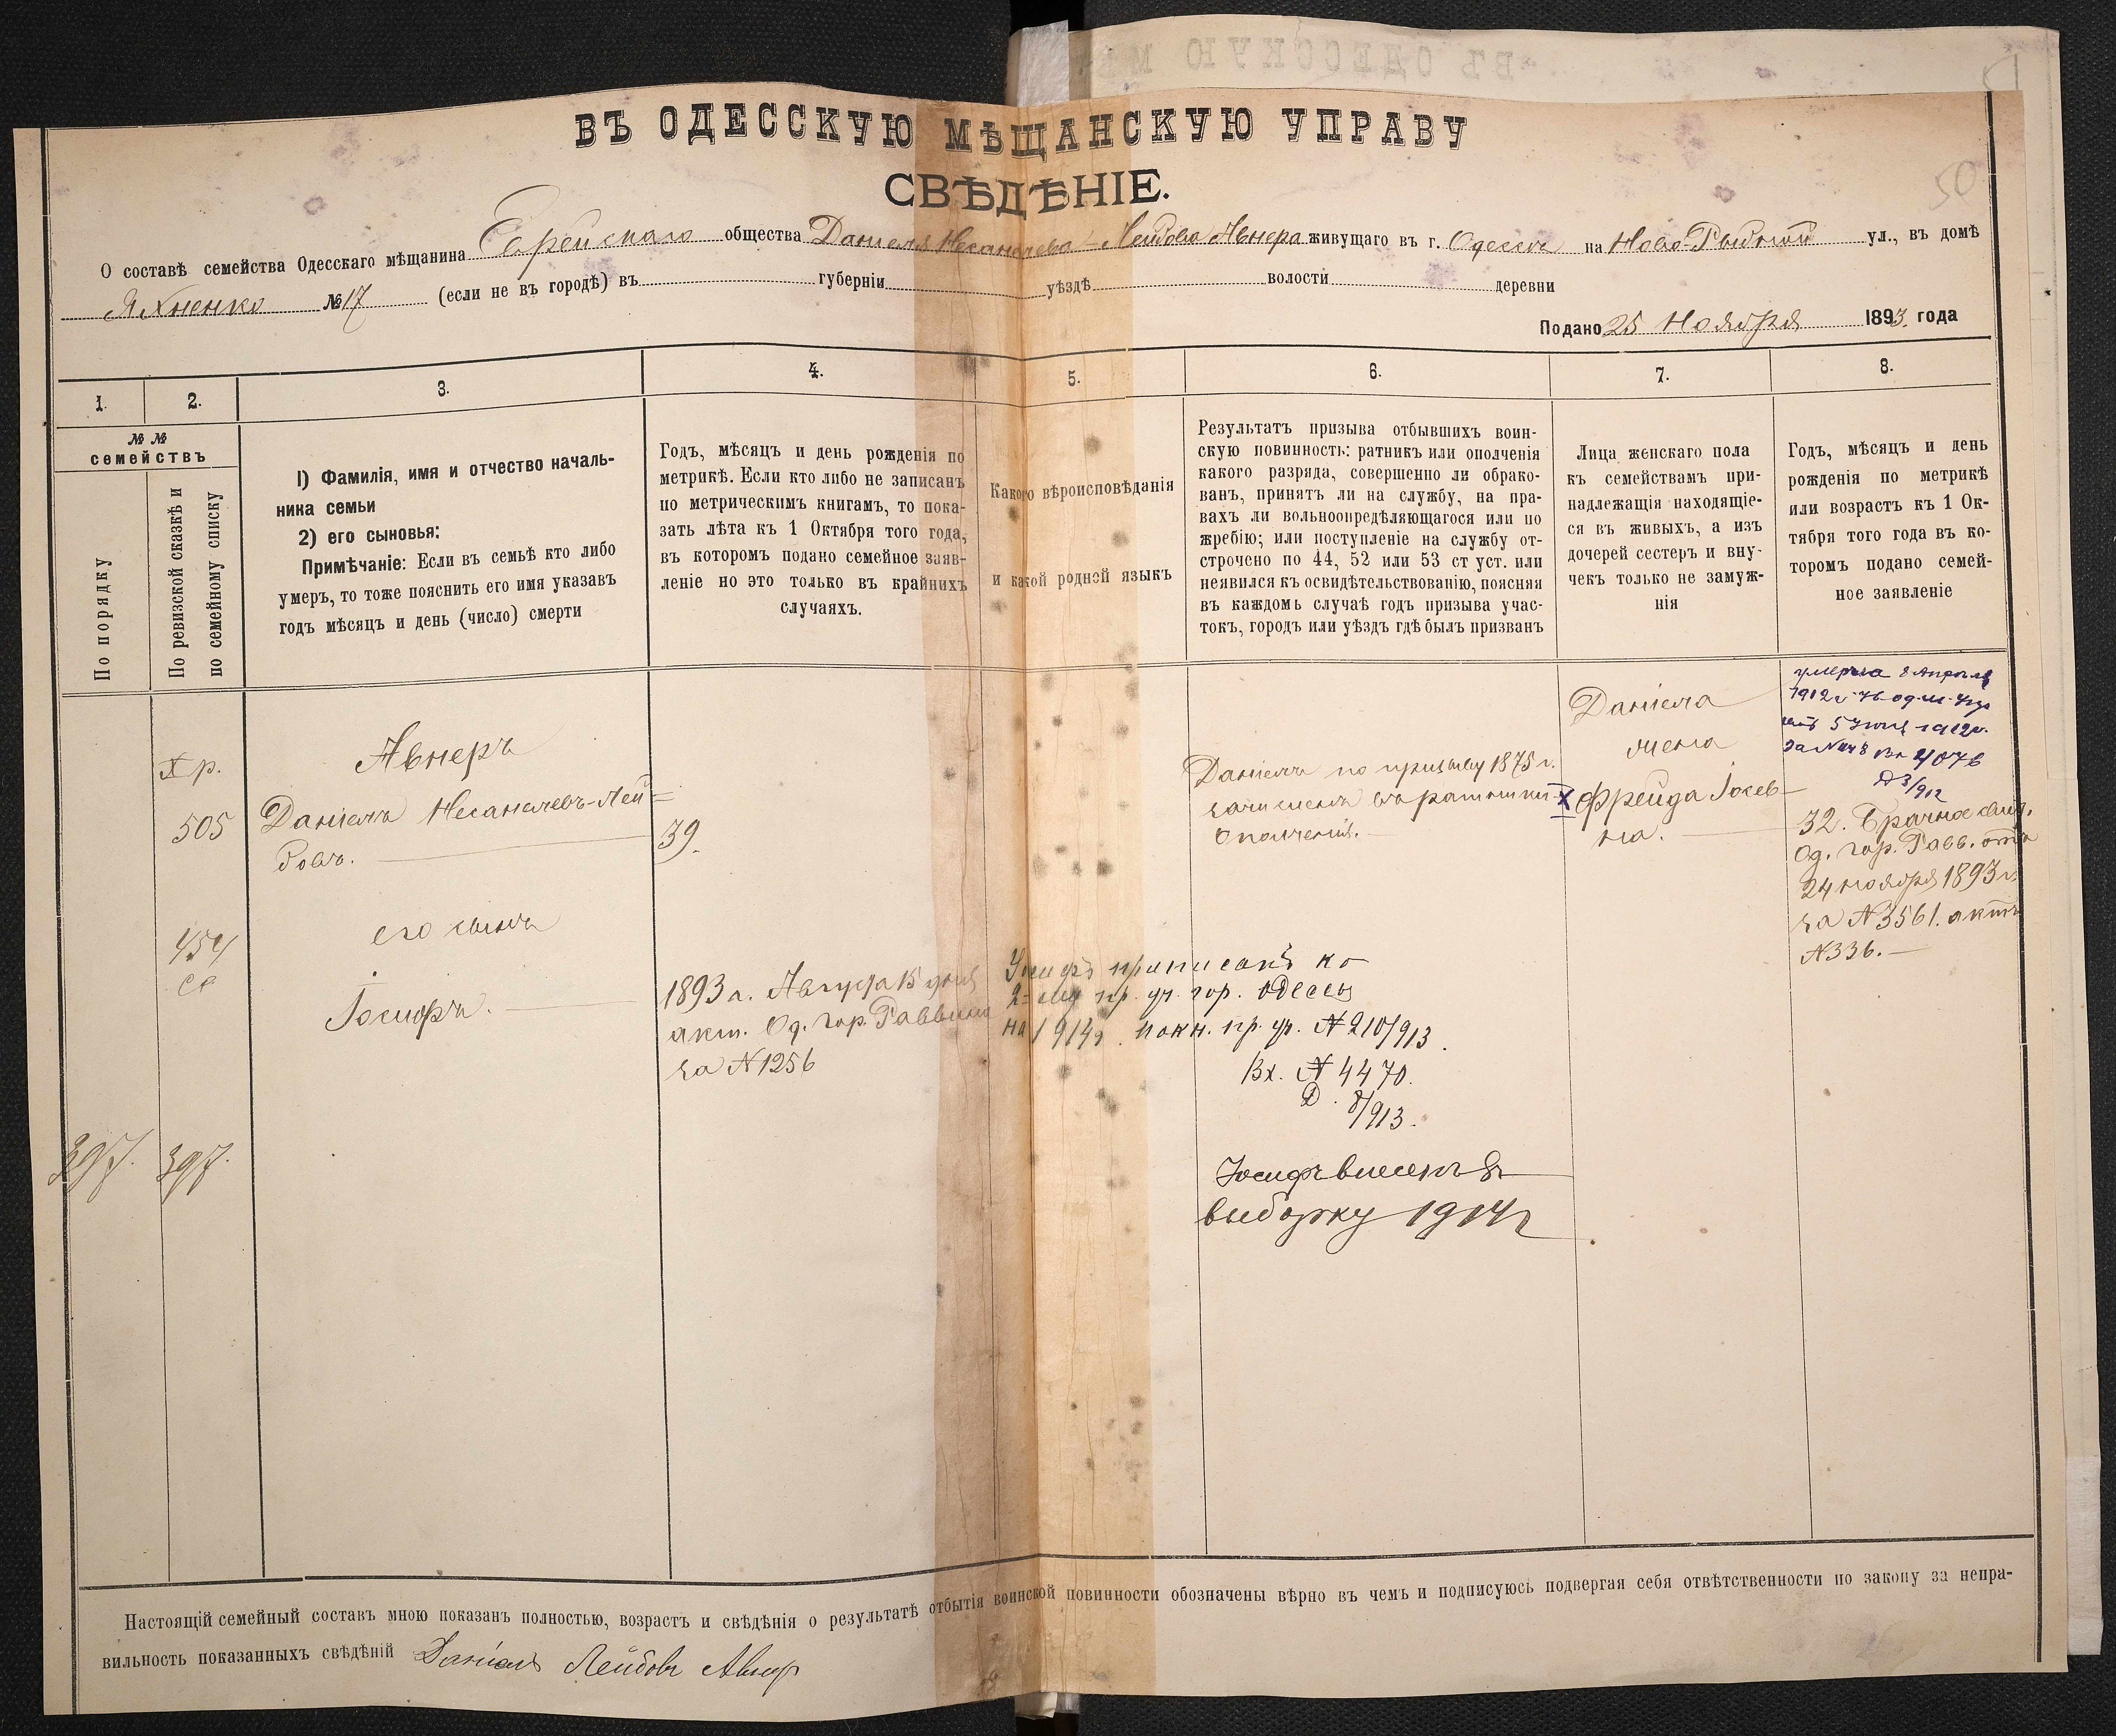 ВЪ ОДЕССКУЮ МѢЩАНСКУЮ УПРАВУ
СВѢДѢНІЕ.
50
О составѣ семейства Одесскаго мѣщанина Еврейскаго общества Даніеля Несанелева-Лейбова Авнера живущаго въ г. Одессѣ на Ново-Рыбной ул., въ домѣ
Яхненко № 17 (если не въ городѣ) въ губерніи уѣздѣ волости деревни
Подано 25 Ноября 1893 года
1.
2.
3.
4.
5.
6.
7.
8.
№ №
семействъ
По порядку
По ревизской сказкѣ и
по семейному списку
I) Фамилія, имя и отчество началь-
ника семьи
2) его сыновья:
Примѣчаніе: Если въ семьѣ кто либо
умеръ, то тоже пояснить его имя указавъ
годъ мѣсяцъ и день (число) смерти
Годъ, мѣсяцъ и день рожденія по
метрикѣ. Если кто либо не записанъ
по метрическимъ книгамъ, то пока-
зать лѣта къ 1 Октября того года,
въ которомъ подано семейное заяв-
леніе но это только въ крайнихъ
случаяхъ.
Какого вѣроисповѣданія
и какой родной языкъ
Результатъ призыва отбывшихъ воин-
скую повинность: ратникъ или ополченія
какого разряда, совершенно ли обрако-
ванъ, принятъ ли на службу, на пра-
вахъ ли вольноопредѣляющагося или по
жребію; или поступленіе на службу от-
строчено по 44, 52 или 53 ст уст. или
неявился къ освидѣтельствованію, поясняя
въ каждомъ случаѣ годъ призыва учас-
токъ, городъ или уѣздъ гдѣ былъ призванъ
Лица женскаго пола
къ семействамъ при-
надлежащія находящіе-
ся въ живыхъ, а изъ
дочерей сестеръ и вну-
чекъ только не замуж-
нія
Годъ, мѣсяцъ и день
рожденія по метрикѣ
или возрастъ къ 1 Ок-
тября того года въ ко-
торомъ подано семей-
ное заявленіе
Хр.
505
454
397.
397.
Авнеръ
Даніелъ Несанелевъ-Лей=
бовъ.
его сынъ
Іосифъ.
39.
1893 г. Августа 15 дня
акт. Од. гор. Раввина
за № 1256
Іосифъ приписанъ ко
2-му пр. уч. гор. Одессы
на 1914 г. покн. пр. уч. № 210/913.
Вх. № 4470.
Д. 8/913.
Даніелъ по призыву 1875 г.
зачисленъ въ ратники
ополченія.
Іосифъ внесенъ въ
выборку 1914 г
Даніела
жена
х Фрейда Іосев-
на.
умерла 8 Апрѣля
1912 г
5 Іюня 1912 г.
за № Вх 4076
Д 3/912
32. Брачное свид.
Од. гор. Равв. отъ
24 ноября 1893 г.
за № 3561. актъ
№ 336.
Настоящій семейный составъ мною показанъ полностью, возрастъ и свѣдѣнія о результатѣ отбытія воинской повинности обозначены вѣрно въ чемъ и подписуюсь подвергая себя отвѣтственности по закону за непра-
вильность показанныхъ свѣдѣній Даніелъ Лейбовъ Авнеръ